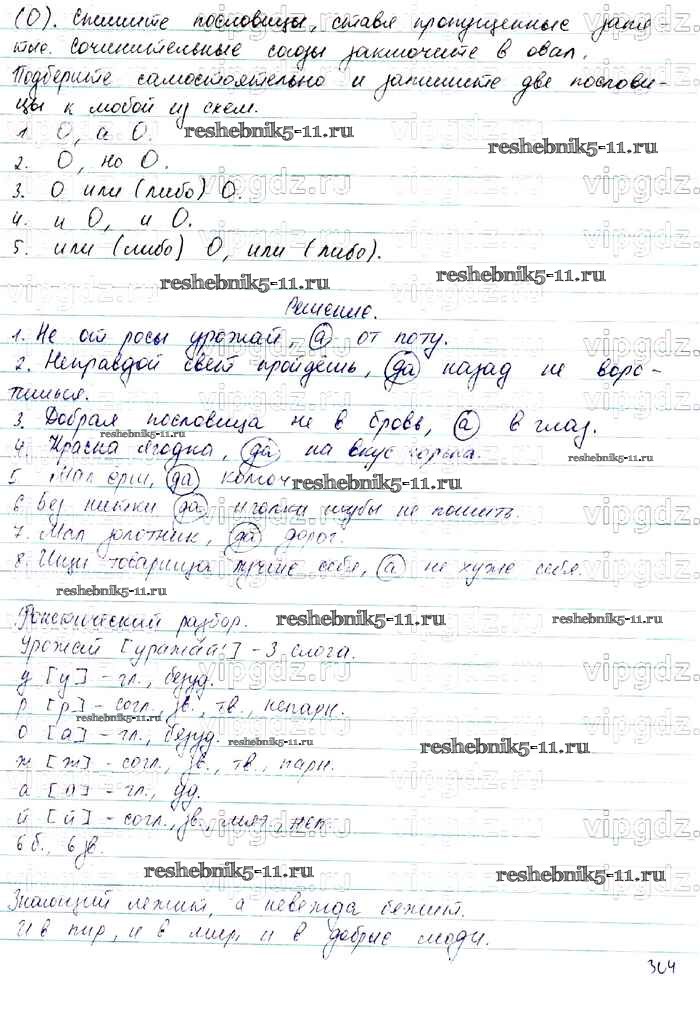 (О). Спишите пословицы, ставя пропущенные запя-
тые. Сочинительные союзы заключите в овал.
Подберите самостоятельно и запишите две послови-
цы к любой из схем.
1. О, а О.
2. О, но О.
3. О или (либо) О.
4. и О, и О.
5. или (либо) О, или (либо).
Решение.
1. Не от росы урожай, а от поту.
2. Неправдой свет пройдёшь, да назад не воро-
тишься.
3. Добрая пословица не в бровь, а в глаз.
4. Красна ягодка, да на вкус горька.
5. Мал ёрш, да колюч
6. Без нитки да иголки шубы не пошить.
7. Мал золотник, да дорог.
8. Ищи товарища лучше себя, а не хуже себя.
Фонетический разбор.
Урожай [уражай'] - 3 слога.
у [у] - гл., безуд.
р [р] - согл., зв., тв., непарн.
о [а] - гл., безуд.
ж [ж] - согл., зв., тв., парн.
а [а] - гл., уд.
й [й] - согл., зв., мягк., неп.
6 б., 6 зв.
Знающий лежит, а невежда бежит.
И в пир, и в мир, и в добрые люди.
304
reshebnik5-11.ru
vipgdz.ru